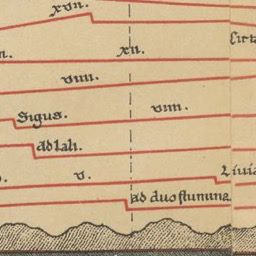 xvii.
Cirta
n.
xii.
viiii.
Sigus.
viiii.
ad lali.
v.
Liuia
ad duo flumina